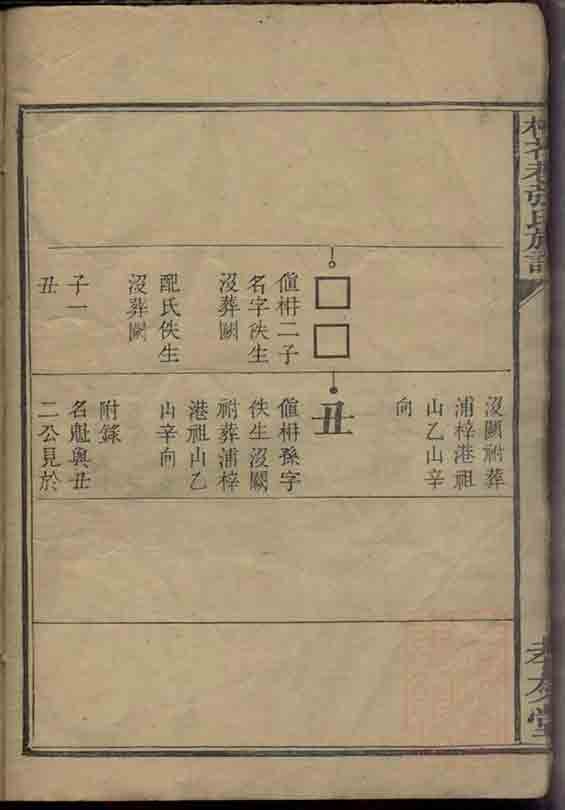 張氏族譜
孝友堂
□□
傎枏二子
名字佚生
沒葬闕
配氏佚生
沒葬闕
子一
丑
沒闕祔葬
浦梓港祖
山乙山辛
向
丑
傎枏孫字
佚生沒闕
祔葬浦梓
港祖山乙
山辛向
附錄
名魁與丑
二公見於